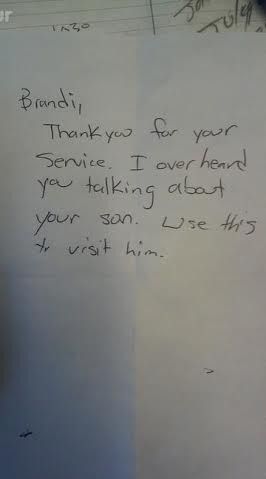 ur
1230
July
Brandi,
Thank you for your
Service. I over heard
you talking about
your son. Use this
to visit him.